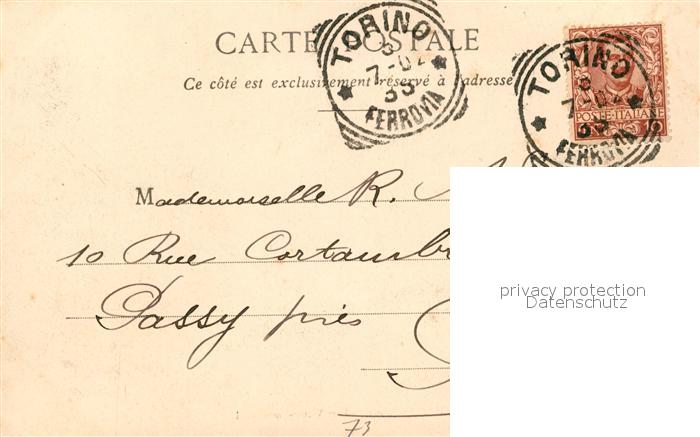 CARTE POSTALE
Ce côté est exclusivement réservé à l'adresse
TORINO
7-02
FERROVIA
TORINO
7-02
FERROVIA
POSTE ITALIANE
Mademoiselle R.
10 Rue Cortamb
Passy près
73
privacy protection
Datenschutz